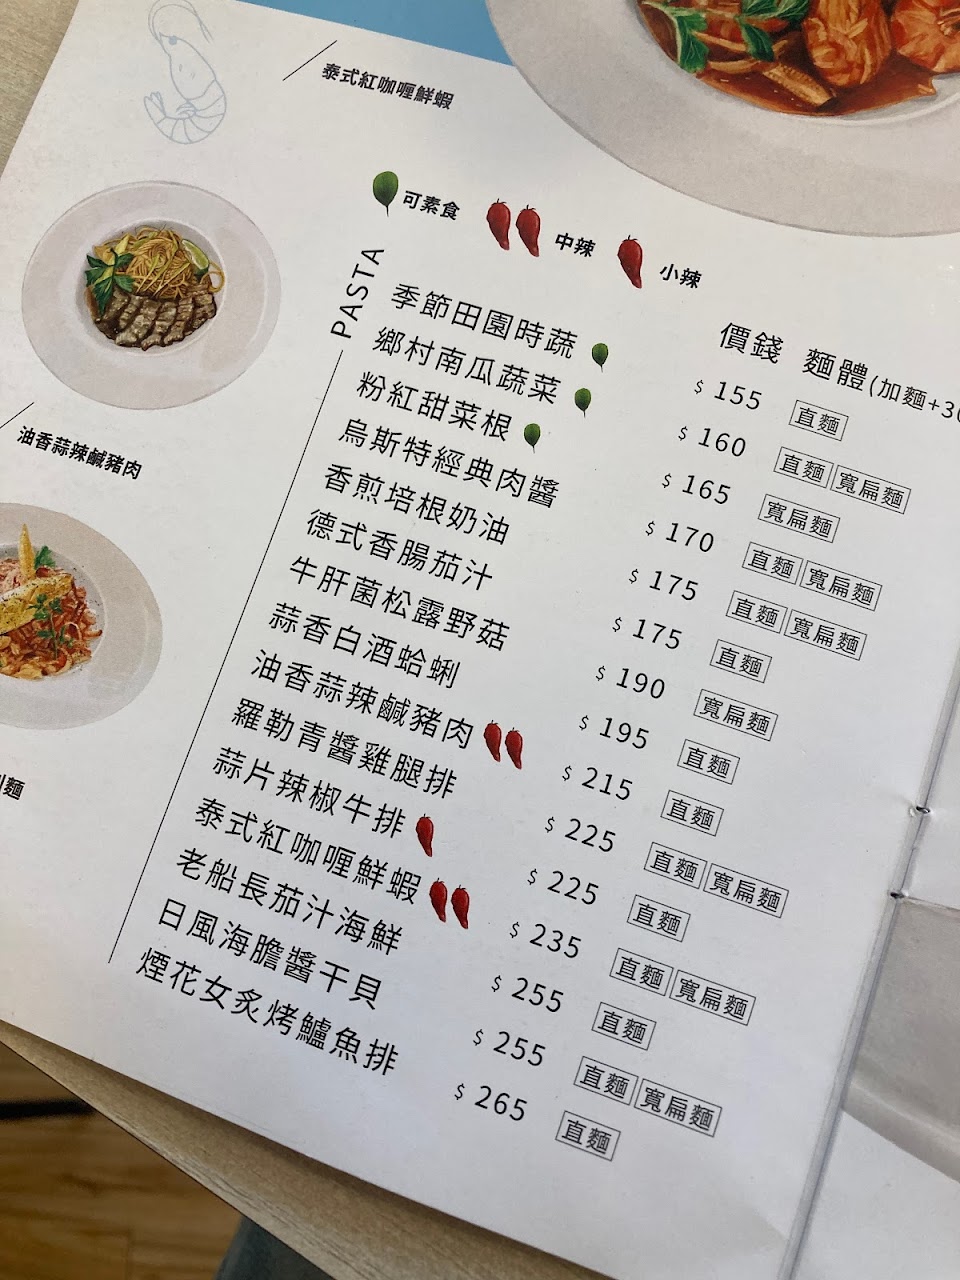 泰式紅咖喱鮮蝦
可素食 中辣 小辣
油香蒜辣鹹豬肉
麵
PASTA
價錢 麵體(加麵+30
季節田園時蔬 $ 155 直麵
鄉村南瓜蔬菜 $ 160 直麵 寬扁麵
粉紅甜菜根 $ 165 寬扁麵
烏斯特經典肉醬 $ 170 直麵 寬扁麵
香煎培根奶油 $ 175 直麵 寬扁麵
德式香腸茄汁 $ 175 直麵
牛肝菌松露野菇 $ 190 寬扁麵
蒜香白酒蛤蜊 $ 195 直麵
油香蒜辣鹹豬肉 $ 215 直麵
羅勒青醬雞腿排 $ 225 直麵 寬扁麵
蒜片辣椒牛排 $ 225 直麵
泰式紅咖喱鮮蝦 $ 235 直麵 寬扁麵
老船長茄汁海鮮 $ 255 直麵
日風海膽醬干貝 $ 255 直麵 寬扁麵
煙花女炙烤鱸魚排 $ 265 直麵